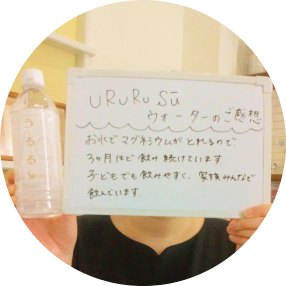 URURU Sū
ウォーターのご感想
お水でマグネシウムがとれるので
3ヶ月ほど飲み続けています
子どもでも飲みやすく、家族みんなで
飲んでいます
うるる